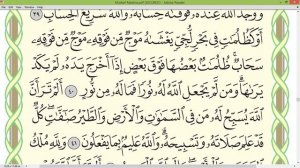 ووجد الله عنده فوفىه حسابه والله سريع الحساب ٣٩
أو كظلمت فى بحر لجى يغشىه موج من فوقه موج من فوقه
سحاب ظلمت بعضها فوق بعض إذا أخرج يده لم يكد
يرىها ومن لم يجعل الله له نورا فما له من نور ٤٠ ألم تر أن
الله يسبح له من فى السموت والأرض والطير صفت كل
قد علم صلاته وتسبيحه والله عليم بما يفعلون ٤١ ولله ملك